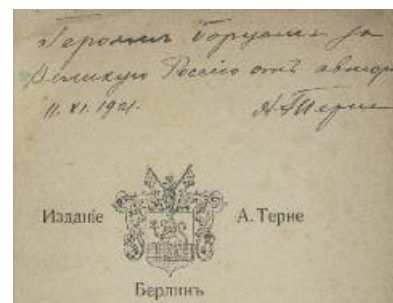 Героямъ борцамъ за
Великую Россію отъ автора
11. XI. 1921. А Терне
Изданіе А. Терне
Берлинъ